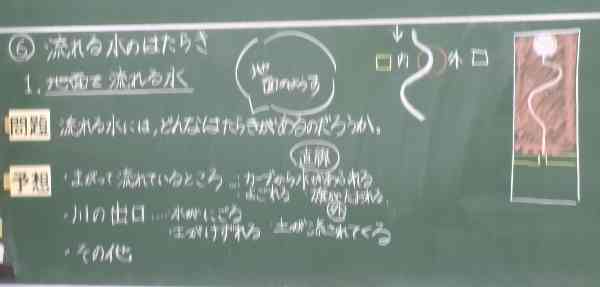 ⑥ 流れる水のはたらき
1. 地面を流れる水
地面のようす
内 外
問題 流れる水には、どんなはたらきがあるのだろうか。
直脚
予想 ・まがって流れているところ…カーブから水があふれる
よごれる 旗がたおれる
外
・川の出口…水がにごる
土がけずれる 土が流されてくる
・その他